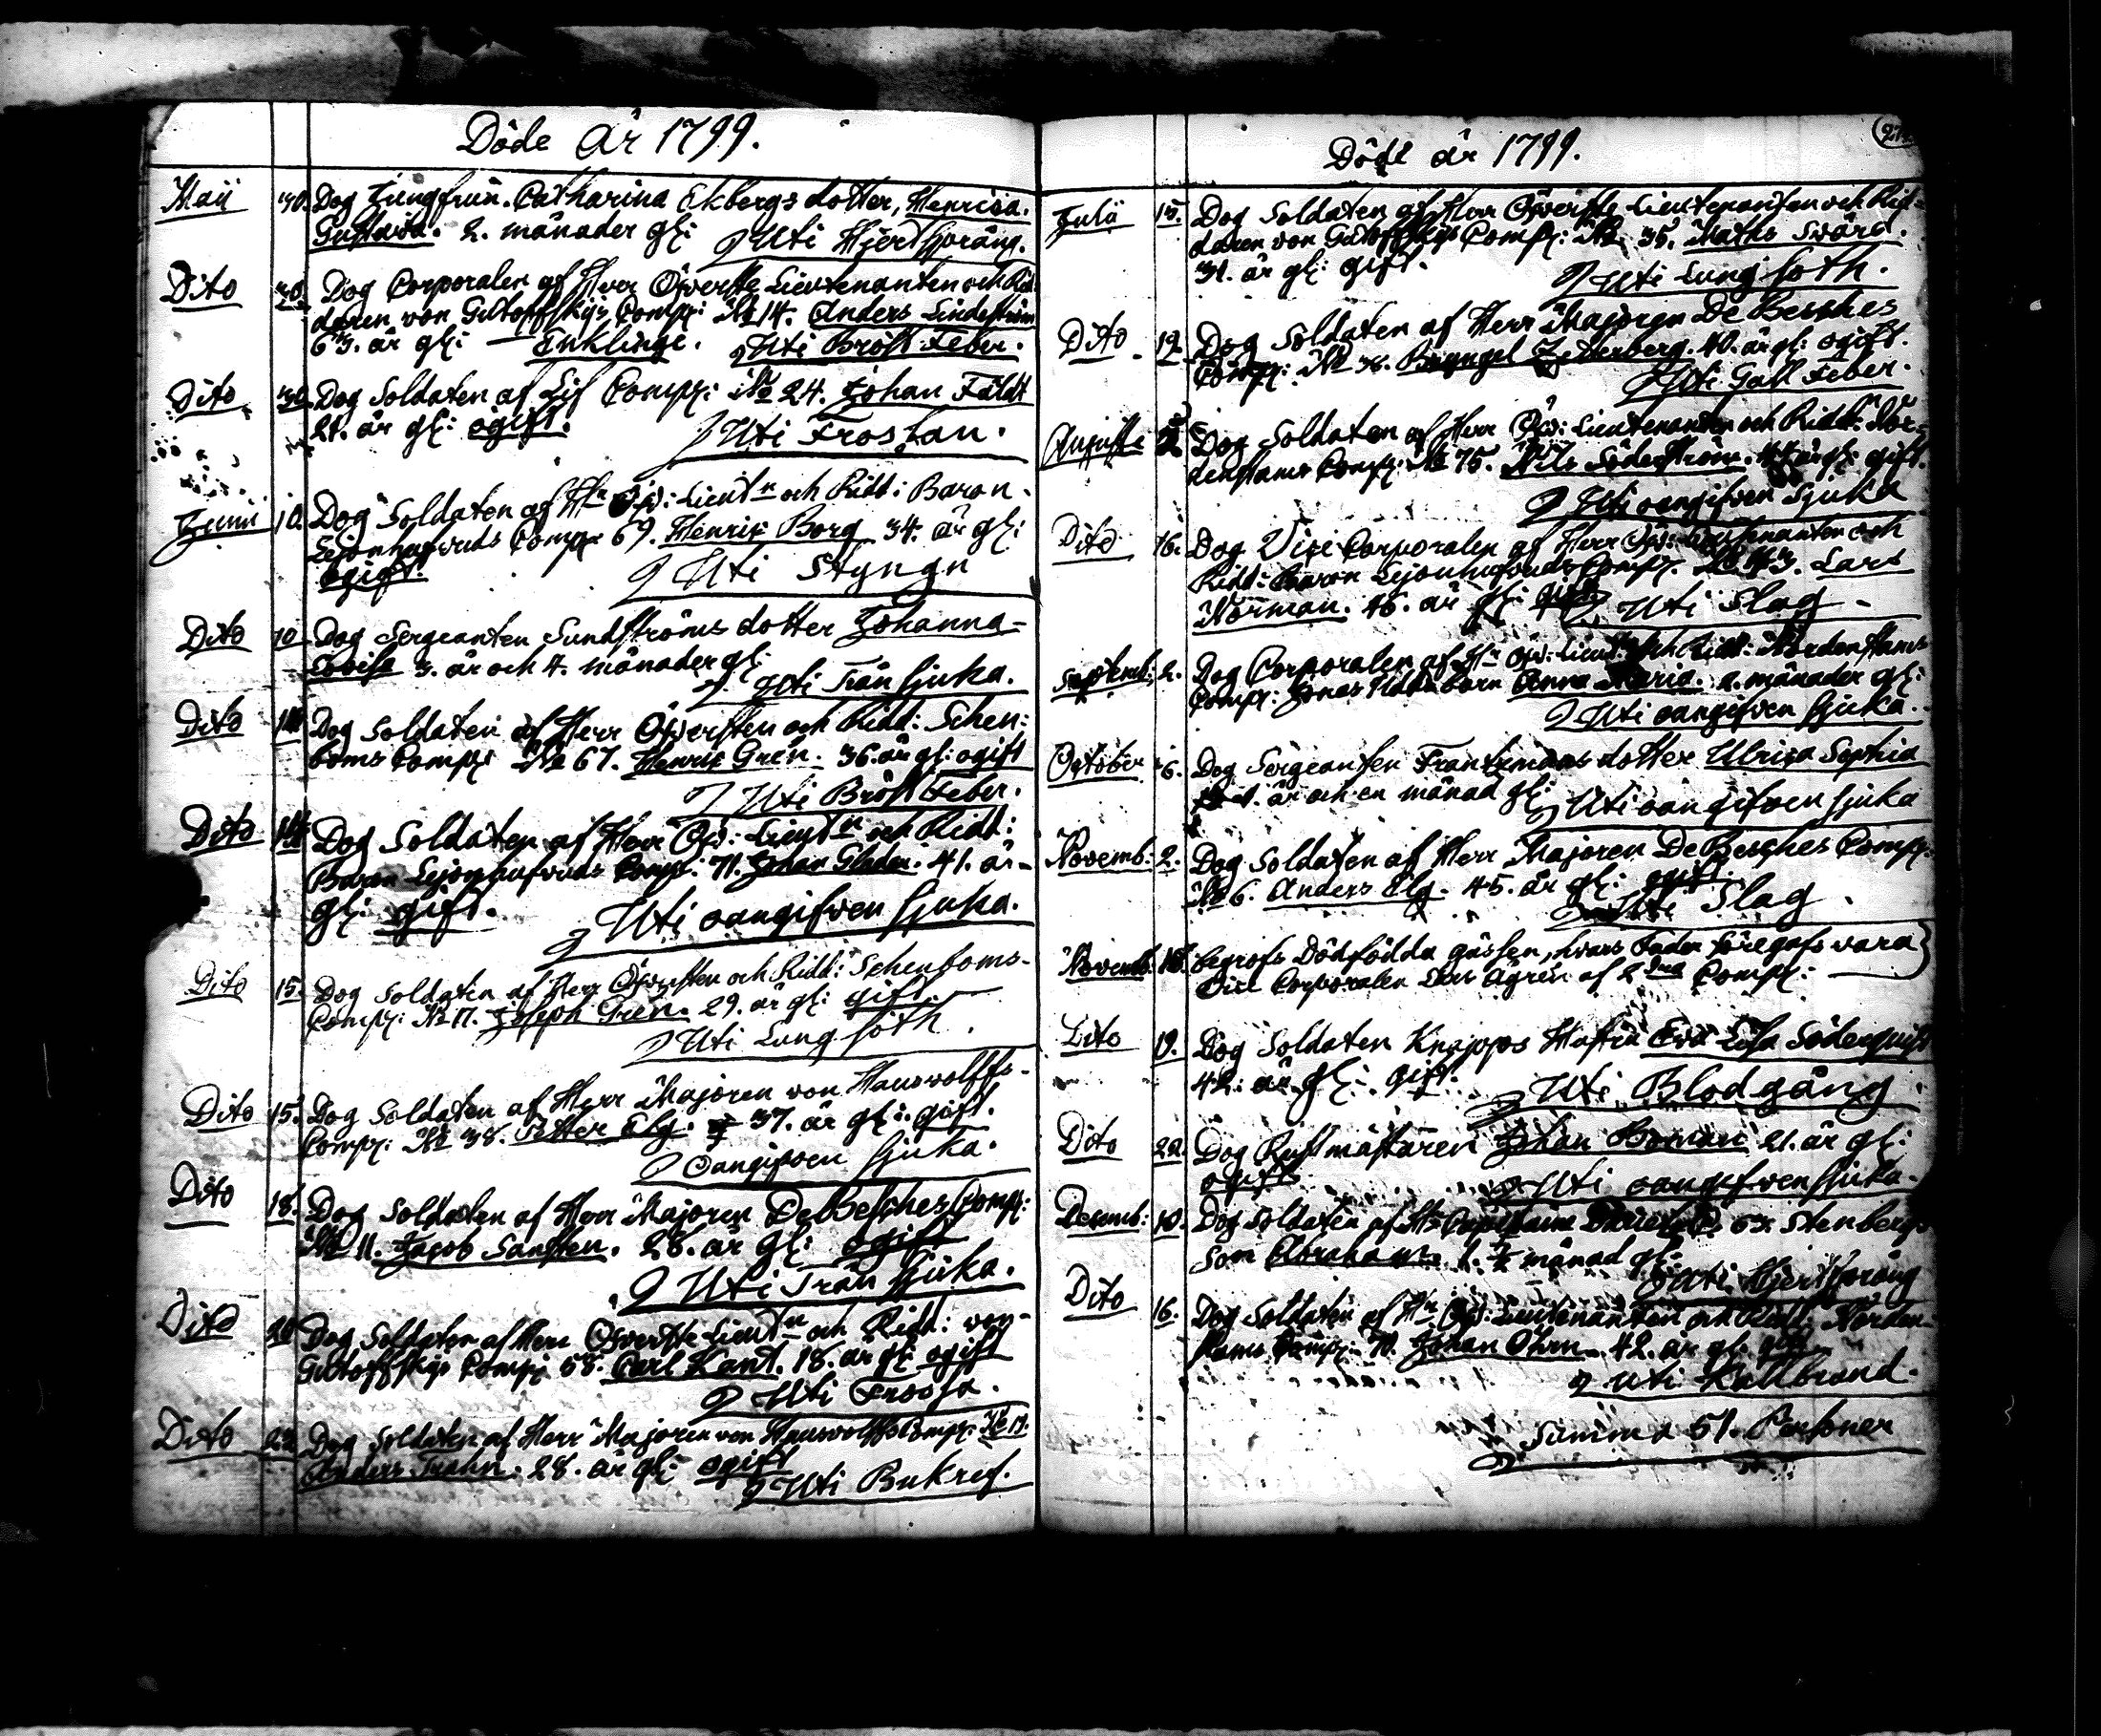 Döde År 1799.
Maii 30. Dog Jungfrun. Catharina Ekbergs dotter, Henrica.
Gustava. 2. månader gl:
Uti Hjertsprång.
Dito 30. Dog Corporalen af Herr Öfverste Lieutenanten och Rid-
daren von Gutoffskys Comp: № 14. Anders Lindström
63. år gl: Enklinge. Uti Bröst Feber.
Dito 30. Dog Soldaten af Lif Comp: № 24. Johan Fäldt
21. år gl: ogift.
Uti Frossan.
Junii 10. Dog Soldaten af Hr Öfv: Lieutn och Ridd: Baron
Lejonhufvuds Comp: 69. Henric Borg 34. år gl:
ogift.
Uti Styngn
Dito 10. Dog Sergeanten Sundströms dotter Johanna
Lovisa 3. år och 7. månader gl:
Uti Trån sjuka.
Dito Dog Soldaten af Herr Öfversten och Ridd: Schen:
boms Comp: № 67. Henric Gren. 36. år gl: ogift
Uti Bröst Feber.
Dito Dog Soldaten af Herr Öfv: Lieutn och Ridd:
Baron Lejonhufvuds Comp: 71. Johan Gladen. 41. år
gl: gift.
Uti oangifven sjuka.
Dito 15. Dog Soldaten af Herr Öfversten och Ridd: Schenboms
Comp: № 17. Joseph Gren. 29. år gl: gift.
Uti Lung soth.
Dito 15. Dog Soldaten af Herr Majoren von Hauswolffs
Comp: № 38. Petter Elg. 37. år gl: gift.
Oangifven sjuka.
Dito 18. Dog Soldaten af Herr Majoren De Besches Comp:
№ 11. Jacob Sansten. 28. år gl: ogift
Uti Trån sjuka.
Dito Dog Soldaten af Herr Öfverste Lieutn och Ridd: von
Gutoffskys Comp: 58. Carl Kant. 18. år gl: ogift
Uti Frossa.
Dito 22 Dog Soldaten af Herr Majoren von Hauswolffs Comp: №
Anders Trahn. 28. år gl: ogift
Uti Bukref.
Döde år 1799.
Julii 15. Dog Soldaten af Herr Öfverste Lieutenanten och Rid-
daren von Gutoffskys Comp: № 35. Maths Svärd.
31. år gl: gift.
Uti Lung soth.
Dito 19. Dog Soldaten af Herr Majoren De Besches
Comp: № Bryngel Zetterberg 40. år gl: ogift.
Uti Gall Feber.
Augusti 2 Dog Soldaten af Herr Öfv: Lieutenanten och Ridd: Nor-
denstams Comp: № 75. Nils Söderström. 44 år gl: gift.
Uti oangifven Sjuka
Dito 16. Dog Vice Corporalen af Herr Öfv: Lieutenanten och
Ridd: Baron Lejonhufvuds Comp: № 43. Lars
Norman. 46. år gl: gift
Uti Slag
Septemb: 2. Dog Corporalen af Hr Öfv: Lieut: och Ridd: Nordenstams
Comp: Jonas barn Anna Maria. 2. månader gl:
Uti oangifven sjuka.
October 6. Dog Sergeanten Frantzmans dotter Ulrica Sophia
1. år och en månad gl:
Uti oangifven sjuka
Novemb: 2. Dog Soldaten af Herr Majoren De Besches Comp:
№ 6. Anders Elg. 45. år gl: gift.
Uti Slag.
Novemb: begrofs Dödfödda gåssen, hvars Fader föregafs vara
Vice Corporalen Lars Ågren af 2dra Comp:
Dito 19. Dog Soldaten Knapps Hustru Eva Lisa Söderquist
42: år gl: gift.
Uti Blodgång.
Dito 22. Dog Rustmästaren Johan Boman 21. år gl:
ogift
Uti oangifven sjuka.
Decemb: 10. Dog Soldaten af Hr Capitaine 63. Stenbergs
Son Abraham. 1. ½ månad gl:
Uti Hjertsprång
Dito 16. Dog Soldaten af Hr Öfv: Lieutenanten och Ridd: Norden-
stams Comp: 70. Johan Öhrn. 42. år gl. gift
Uti Kallbrand.
Summa 51. Personer